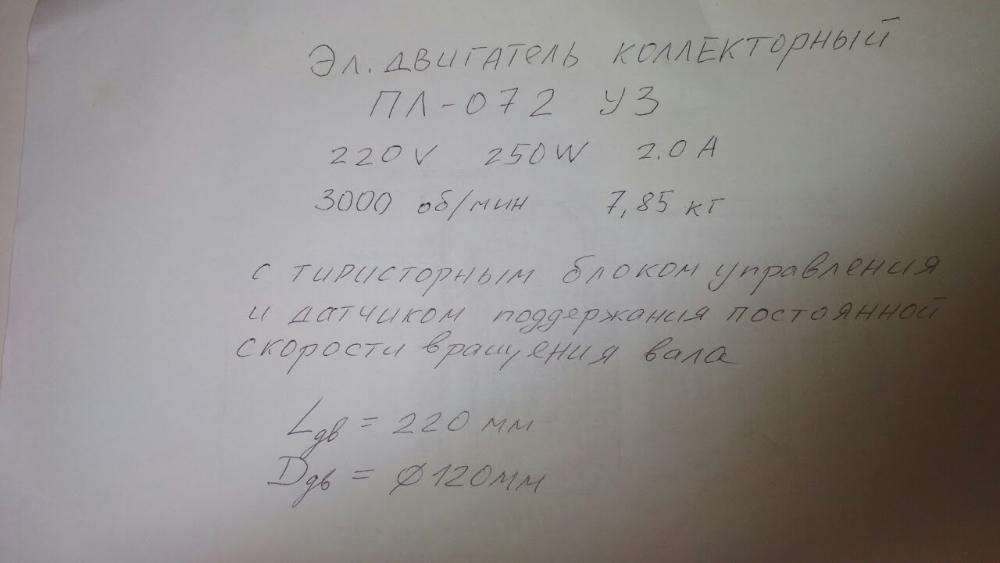 Эл. двигатель коллекторный
ПЛ-072 У3
220V 250W 2.0 А
3000 об/мин 7,85 кг
с тиристорным блоком управления
и датчиком поддержания постоянной
скорости вращения вала
Lдв = 220 мм
Dдв = ⌀120мм